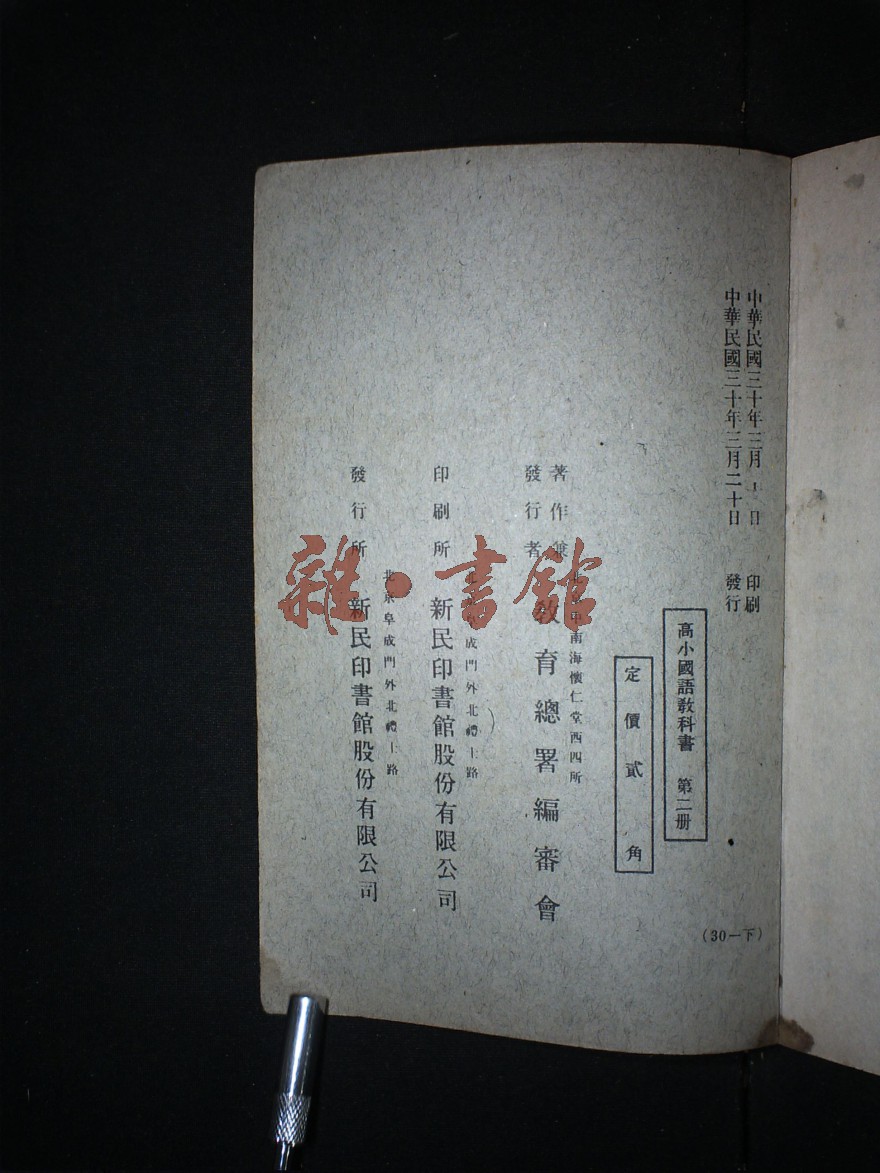 中華民國三十年三月 日 印刷
中華民國三十年三月二十日 發行
高小國語教科書 第二册
定價貳角
著作兼
發行者
中南海懷仁堂西四所
教育總署編審會
印刷所
阜成門外北禮士路
新民印書館股份有限公司
發行所
北京阜成門外北禮士路
新民印書館股份有限公司
(30—下)
雜·書館